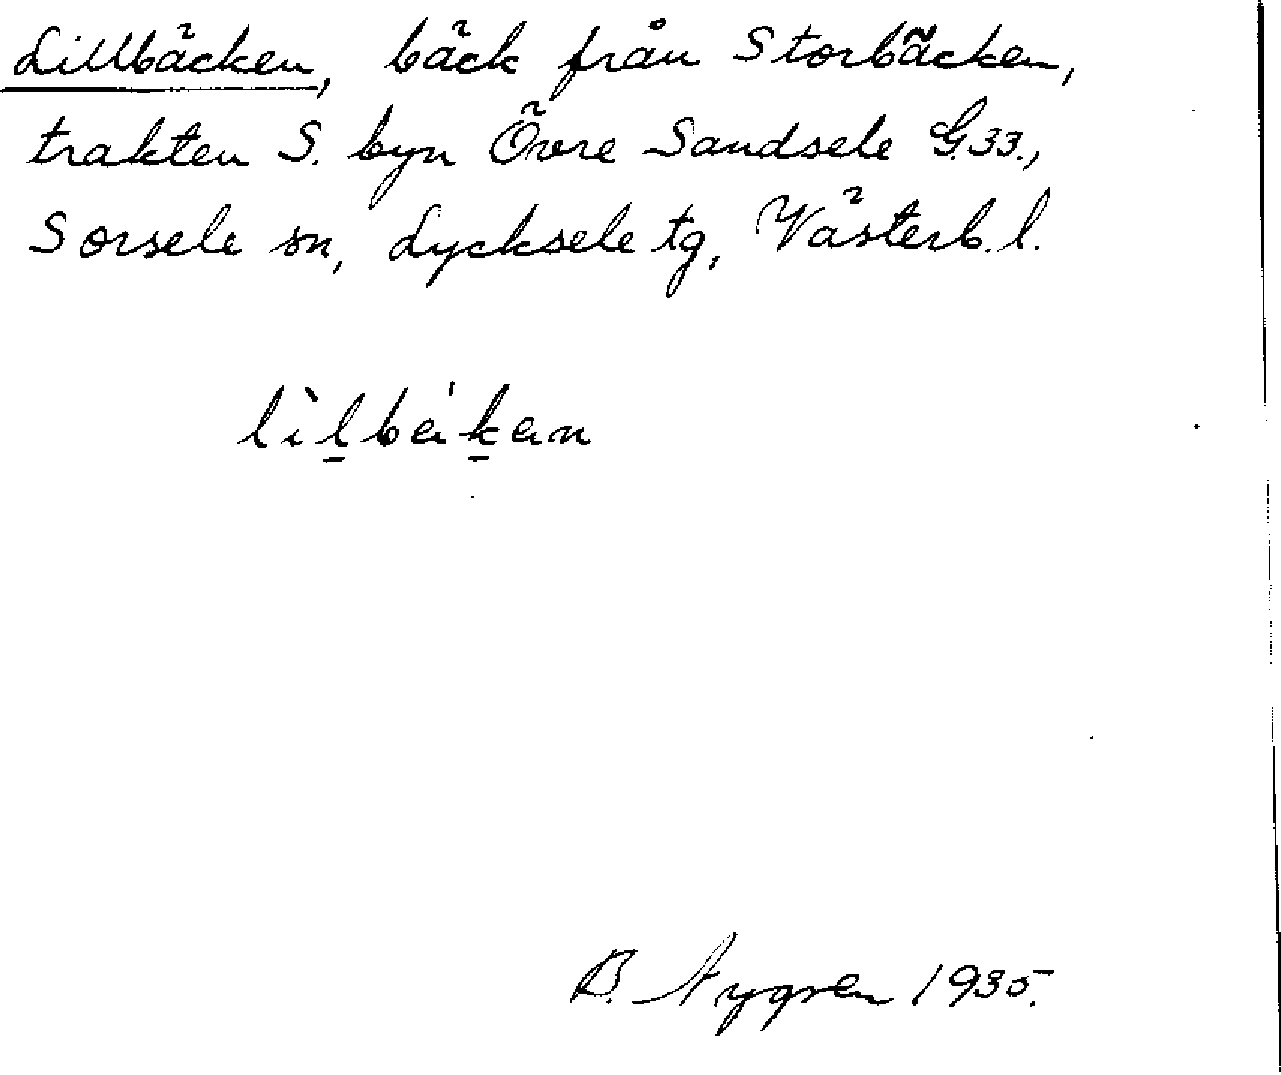 Lillbäcken, bäck från Storbäcken,
trakten S. byn Övre Sandsele G.33.,
Sorsele sn, Lycksele tg, Västerb. l.
B. Nygren 1935.